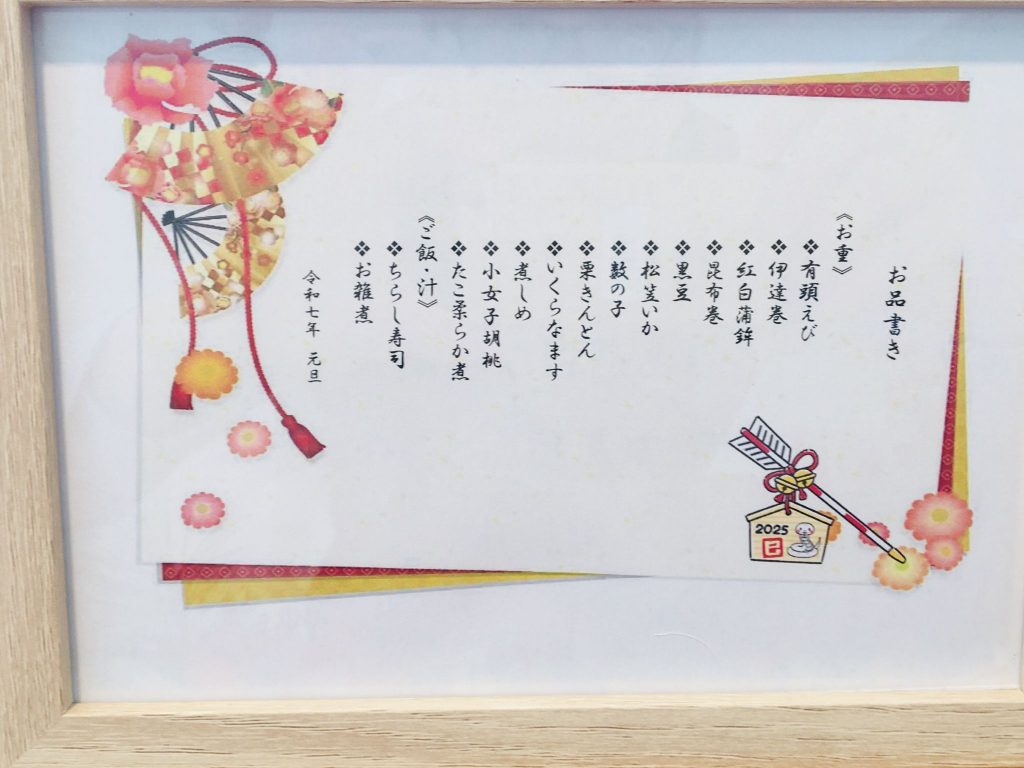 お品書き
《お重》
❖有頭えび
❖伊達巻
❖紅白蒲鉾
❖昆布巻
❖黒豆
❖松笠いか
❖数の子
❖栗きんとん
❖いくらなます
❖煮しめ
❖小女子胡桃
❖たこ柔らか煮
《ご飯・汁》
❖ちらし寿司
❖お雑煮
令和七年 元旦
2025
巳